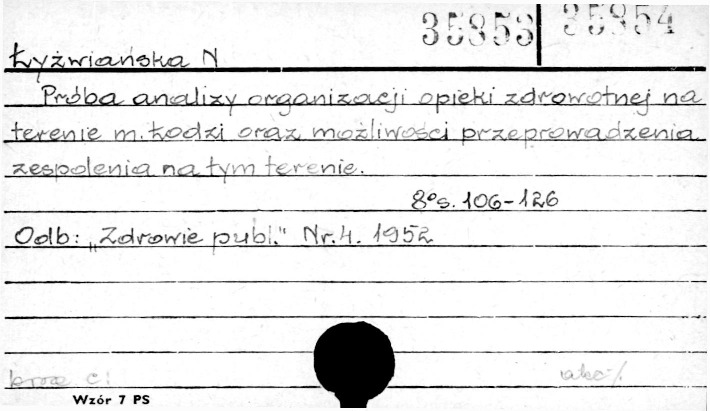 35853 35854
Łyżwiańska N
Próba analizy organizacji opieki zdrowotnej na
terenie m. Łodzi oraz możliwości przeprowadzenia
zespolenia na tym terenie.
8° s. 106-126
Odb: „Zdrowie publ." Nr. 4. 1952
Wzór 7 PS